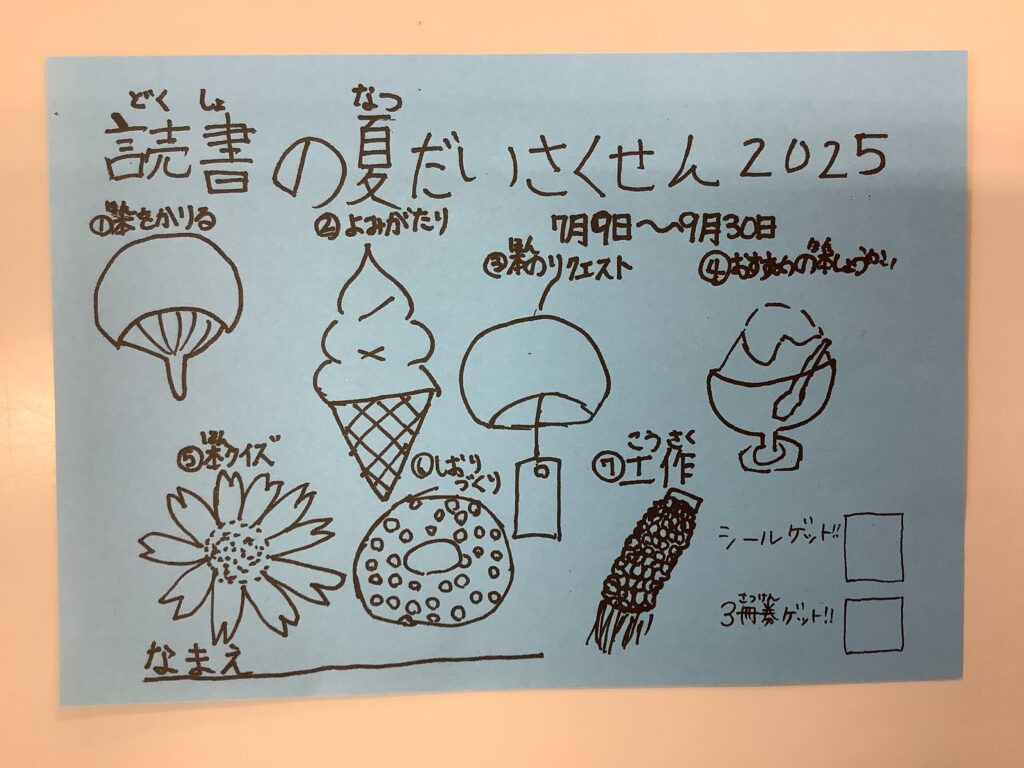 どく しょ なつ
読書の夏だいさくせん2025
7月9日〜9月30日
ほん
①本をかりる
②よみがたり
ほん
③本のリクエスト
ほん
④おすすめの本しょうかい
ほん
⑤本クイズ
⑥しおり
づくり
こうさく
⑦工作
シールゲット!!
さつけん
3冊券ゲット!!
なまえ